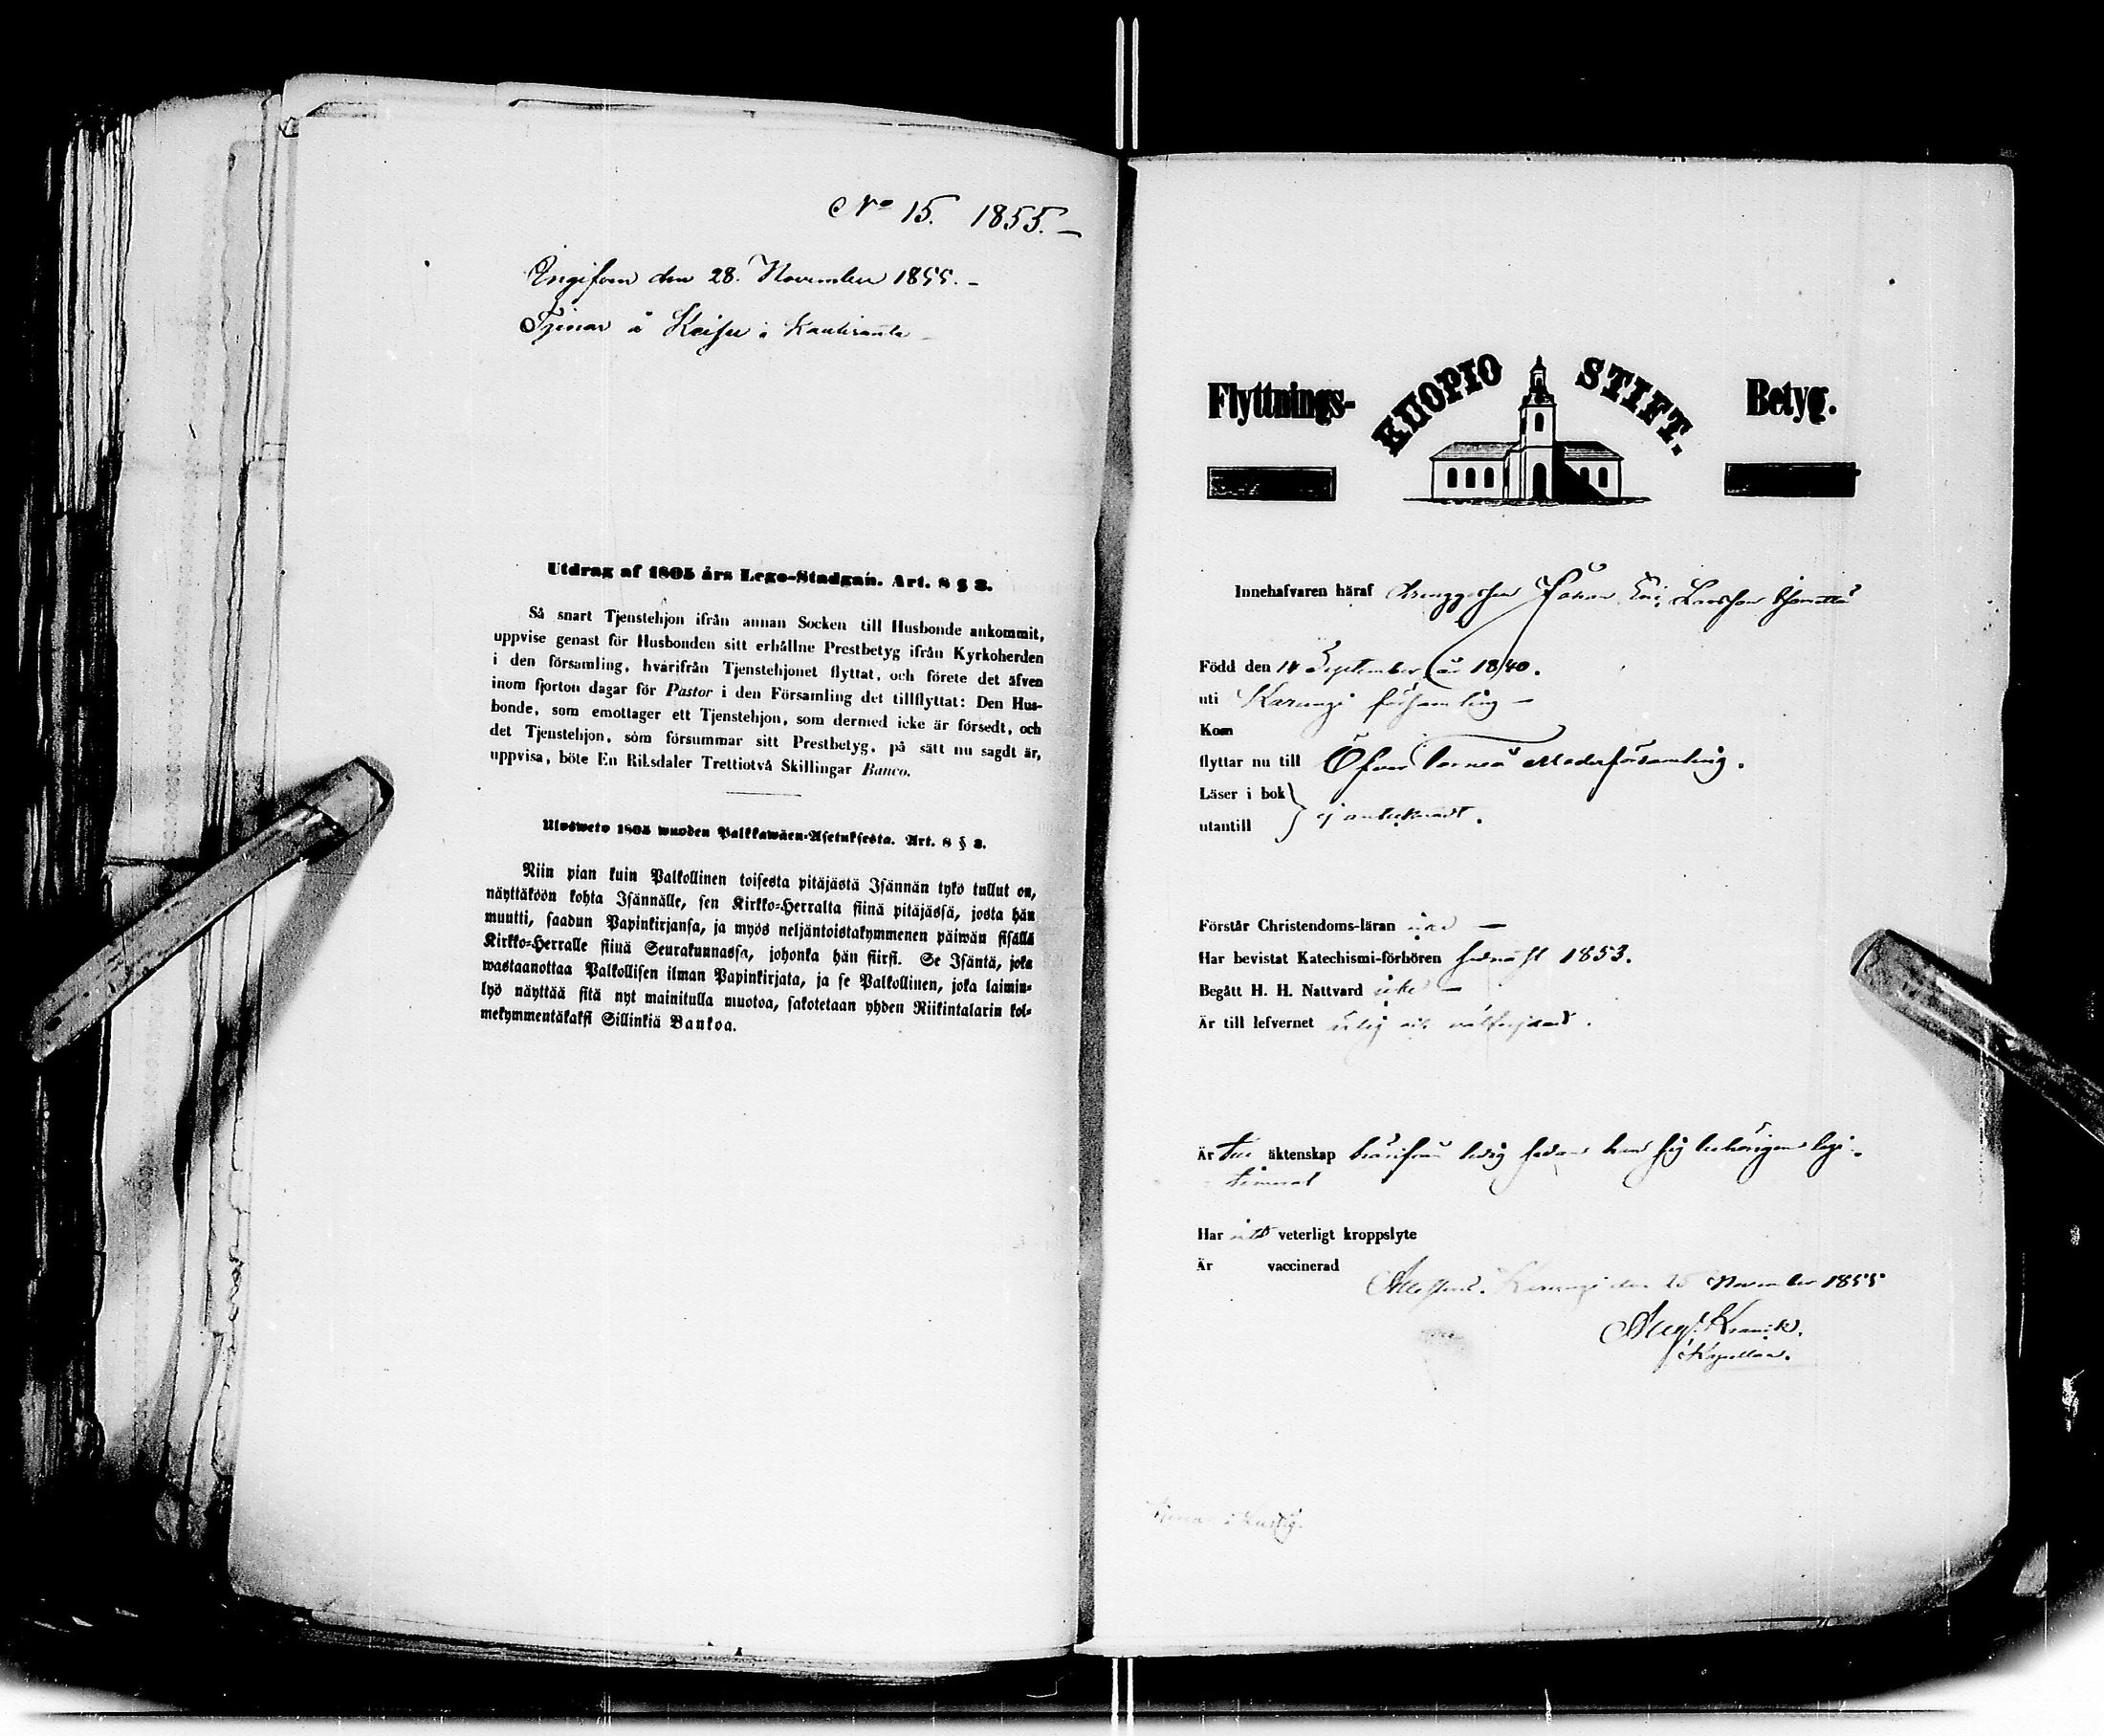 No 15. 1855. –
Ingifven den 28. November 1855. –
Tjenar å Keisu i Kauliranta
Utdrag af 1805 års Lego-Stadgan. Art. 8 § 3.
Så snart Tjenstehjon ifrån annan Socken till Husbonde ankommit,
uppvise genast för Husbonden sitt erhållne Prestbetyg ifrån Kyrkoherden
i den församling, hvarifrån Tjenstehjonet flyttat, och förete det äfven
inom fjorton dagar för Pastor i den Församling det tillflyttat: Den Hus-
bonde, som emottager ett Tjenstehjon, som dermed icke är försedt, och
det Tjenstehjon, som försummar sitt Prestbetyg, på sätt nu sagdt är,
uppvisa, böte En Riksdaler Trettiotvå Skillingar Banco.
Ulosweto 1805 wuoden Palkkawäen-Asetuksesta. Art. 8 § 3.
Niin pian kuin Palkollinen toisesta pitäjästä Isännän tykö tullut on,
näyttäköön kohta Isännälle, sen Kirkko-Herralta siinä pitäjässä, josta hän
muutti, saadun Papinkirjansa, ja myös neljäntoistakymmenen päiwän sisällä
Kirkko-Herralle siinä Seurakunnassa, johonka hän siirsi. Se Isäntä, joka
wastaanottaa Palkollisen ilman Papinkirjata, ja se Palkollinen, joka laimin-
lyö näyttää sitä nyt mainitulla muotoa, sakotetaan yhden Riikintalarin kol-
mekymmentäkaksi Sillinkiä Bankoa.
Flyttnings- KUOPIO STIFT. Betyg.
Innehafvaren häraf Drenggossen Johan Eric Larsson
Född den 14 September år 1840.
uti Karungi församling –
Kom
flyttar nu till Öfver Torneå Moderförsamling.
Läser i bok
utantill } ej antecknadt.
Förstår Christendoms-läran
Har bevistat Katechismi-förhören sednast 1853.
Begått H. H. Nattvard icke –
Är till lefvernet ärlig och välfrejdad.
Är till äktenskap härifrån ledig sedan han sig behörigen legi-
timerat
Har intet veterligt kroppslyte
Är vaccinerad
Attesterad. Karungi den November 1855
Kapellan.